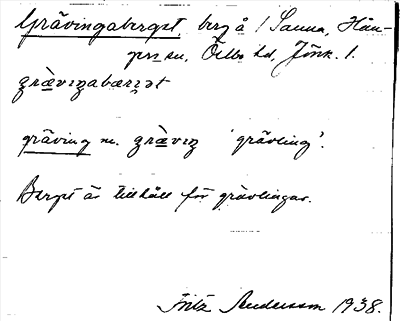 Grävingaberget, berg å / Sanna, Hån-
gers sn, Östbo hd, Jönk. l.
græ̀vıŋabærı̨ət
gräving m. græ̀vıŋ 'grävling'.
Berget är tillhåll för grävlingar.
Fritz Andersson 1938.